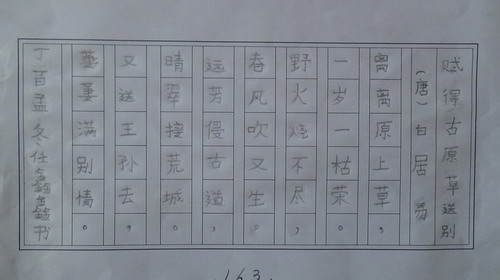 赋得古原草送别
(唐)白居易
离离原上草，
一岁一枯荣。
野火烧不尽，
春风吹又生。
远芳侵古道，
晴翠接荒城。
又送王孙去，
萋萋满别情。
丁百孟冬任鑫鑫书
.163.